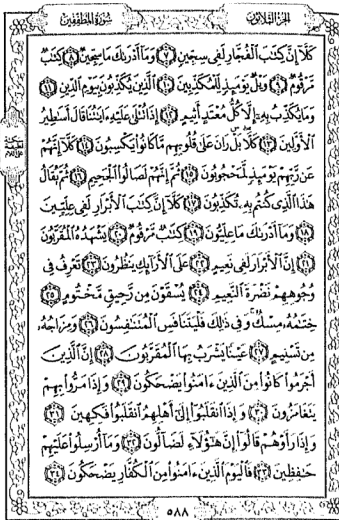 الجزء الثلاثون
سورة المطففين
كَلَّا إِنَّ كِتَٰبَ ٱلْفُجَّارِ لَفِى سِجِّينٍ ۝٧ وَمَآ أَدْرَىٰكَ مَا سِجِّينٌ ۝٨ كِتَٰبٌ
مَّرْقُومٌ ۝٩ وَيْلٌ يَوْمَئِذٍ لِّلْمُكَذِّبِينَ ۝١٠ ٱلَّذِينَ يُكَذِّبُونَ بِيَوْمِ ٱلدِّينِ ۝١١
وَمَا يُكَذِّبُ بِهِۦٓ إِلَّا كُلُّ مُعْتَدٍ أَثِيمٍ ۝١٢ إِذَا تُتْلَىٰ عَلَيْهِ ءَايَٰتُنَا قَالَ أَسَٰطِيرُ
ٱلْأَوَّلِينَ ۝١٣ كَلَّا ۖ بَلْ ۜ رَانَ عَلَىٰ قُلُوبِهِم مَّا كَانُوا۟ يَكْسِبُونَ ۝١٤ كَلَّآ إِنَّهُمْ
عَن رَّبِّهِمْ يَوْمَئِذٍ لَّمَحْجُوبُونَ ۝١٥ ثُمَّ إِنَّهُمْ لَصَالُوا۟ ٱلْجَحِيمِ ۝١٦ ثُمَّ يُقَالُ
هَٰذَا ٱلَّذِى كُنتُم بِهِۦ تُكَذِّبُونَ ۝١٧ كَلَّآ إِنَّ كِتَٰبَ ٱلْأَبْرَارِ لَفِى عِلِّيِّينَ
۝١٨ وَمَآ أَدْرَىٰكَ مَا عِلِّيُّونَ ۝١٩ كِتَٰبٌ مَّرْقُومٌ ۝٢٠ يَشْهَدُهُ ٱلْمُقَرَّبُونَ
۝٢١ إِنَّ ٱلْأَبْرَارَ لَفِى نَعِيمٍ ۝٢٢ عَلَى ٱلْأَرَآئِكِ يَنظُرُونَ ۝٢٣ تَعْرِفُ فِى
وُجُوهِهِمْ نَضْرَةَ ٱلنَّعِيمِ ۝٢٤ يُسْقَوْنَ مِن رَّحِيقٍ مَّخْتُومٍ ۝٢٥
خِتَٰمُهُۥ مِسْكٌ ۚ وَفِى ذَٰلِكَ فَلْيَتَنَافَسِ ٱلْمُتَنَٰفِسُونَ ۝٢٦ وَمِزَاجُهُۥ
مِن تَسْنِيمٍ ۝٢٧ عَيْنًا يَشْرَبُ بِهَا ٱلْمُقَرَّبُونَ ۝٢٨ إِنَّ ٱلَّذِينَ
أَجْرَمُوا۟ كَانُوا۟ مِنَ ٱلَّذِينَ ءَامَنُوا۟ يَضْحَكُونَ ۝٢٩ وَإِذَا مَرُّوا۟ بِهِمْ
يَتَغَامَزُونَ ۝٣٠ وَإِذَا ٱنقَلَبُوٓا۟ إِلَىٰٓ أَهْلِهِمُ ٱنقَلَبُوا۟ فَكِهِينَ ۝٣١
وَإِذَا رَأَوْهُمْ قَالُوٓا۟ إِنَّ هَٰٓؤُلَآءِ لَضَآلُّونَ ۝٣٢ وَمَآ أُرْسِلُوا۟ عَلَيْهِمْ
حَٰفِظِينَ ۝٣٣ فَٱلْيَوْمَ ٱلَّذِينَ ءَامَنُوا۟ مِنَ ٱلْكُفَّارِ يَضْحَكُونَ ۝٣٤
٥٨٨